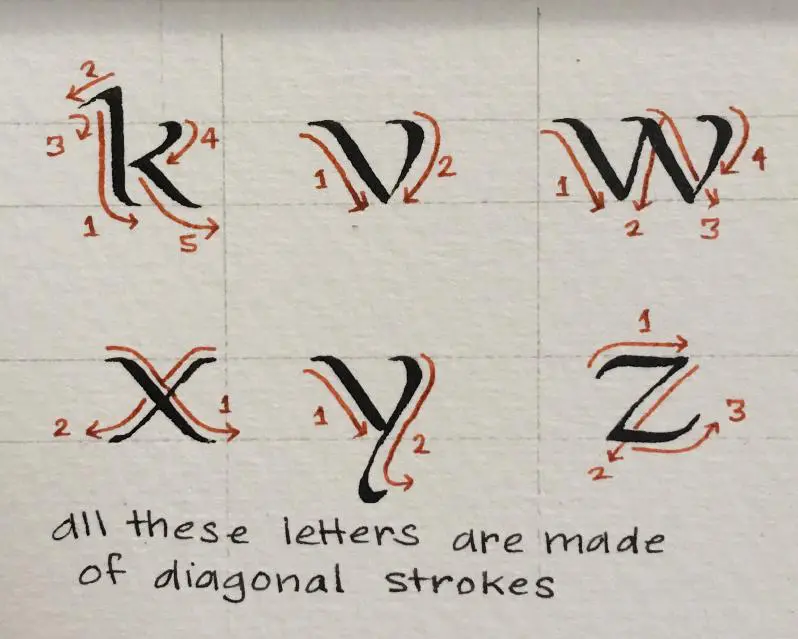 2
3
k
4
1
5
v
1
2
w
1
2
3
4
x
2
1
y
1
2
1
z
2
3
all these letters are made
of diagonal strokes